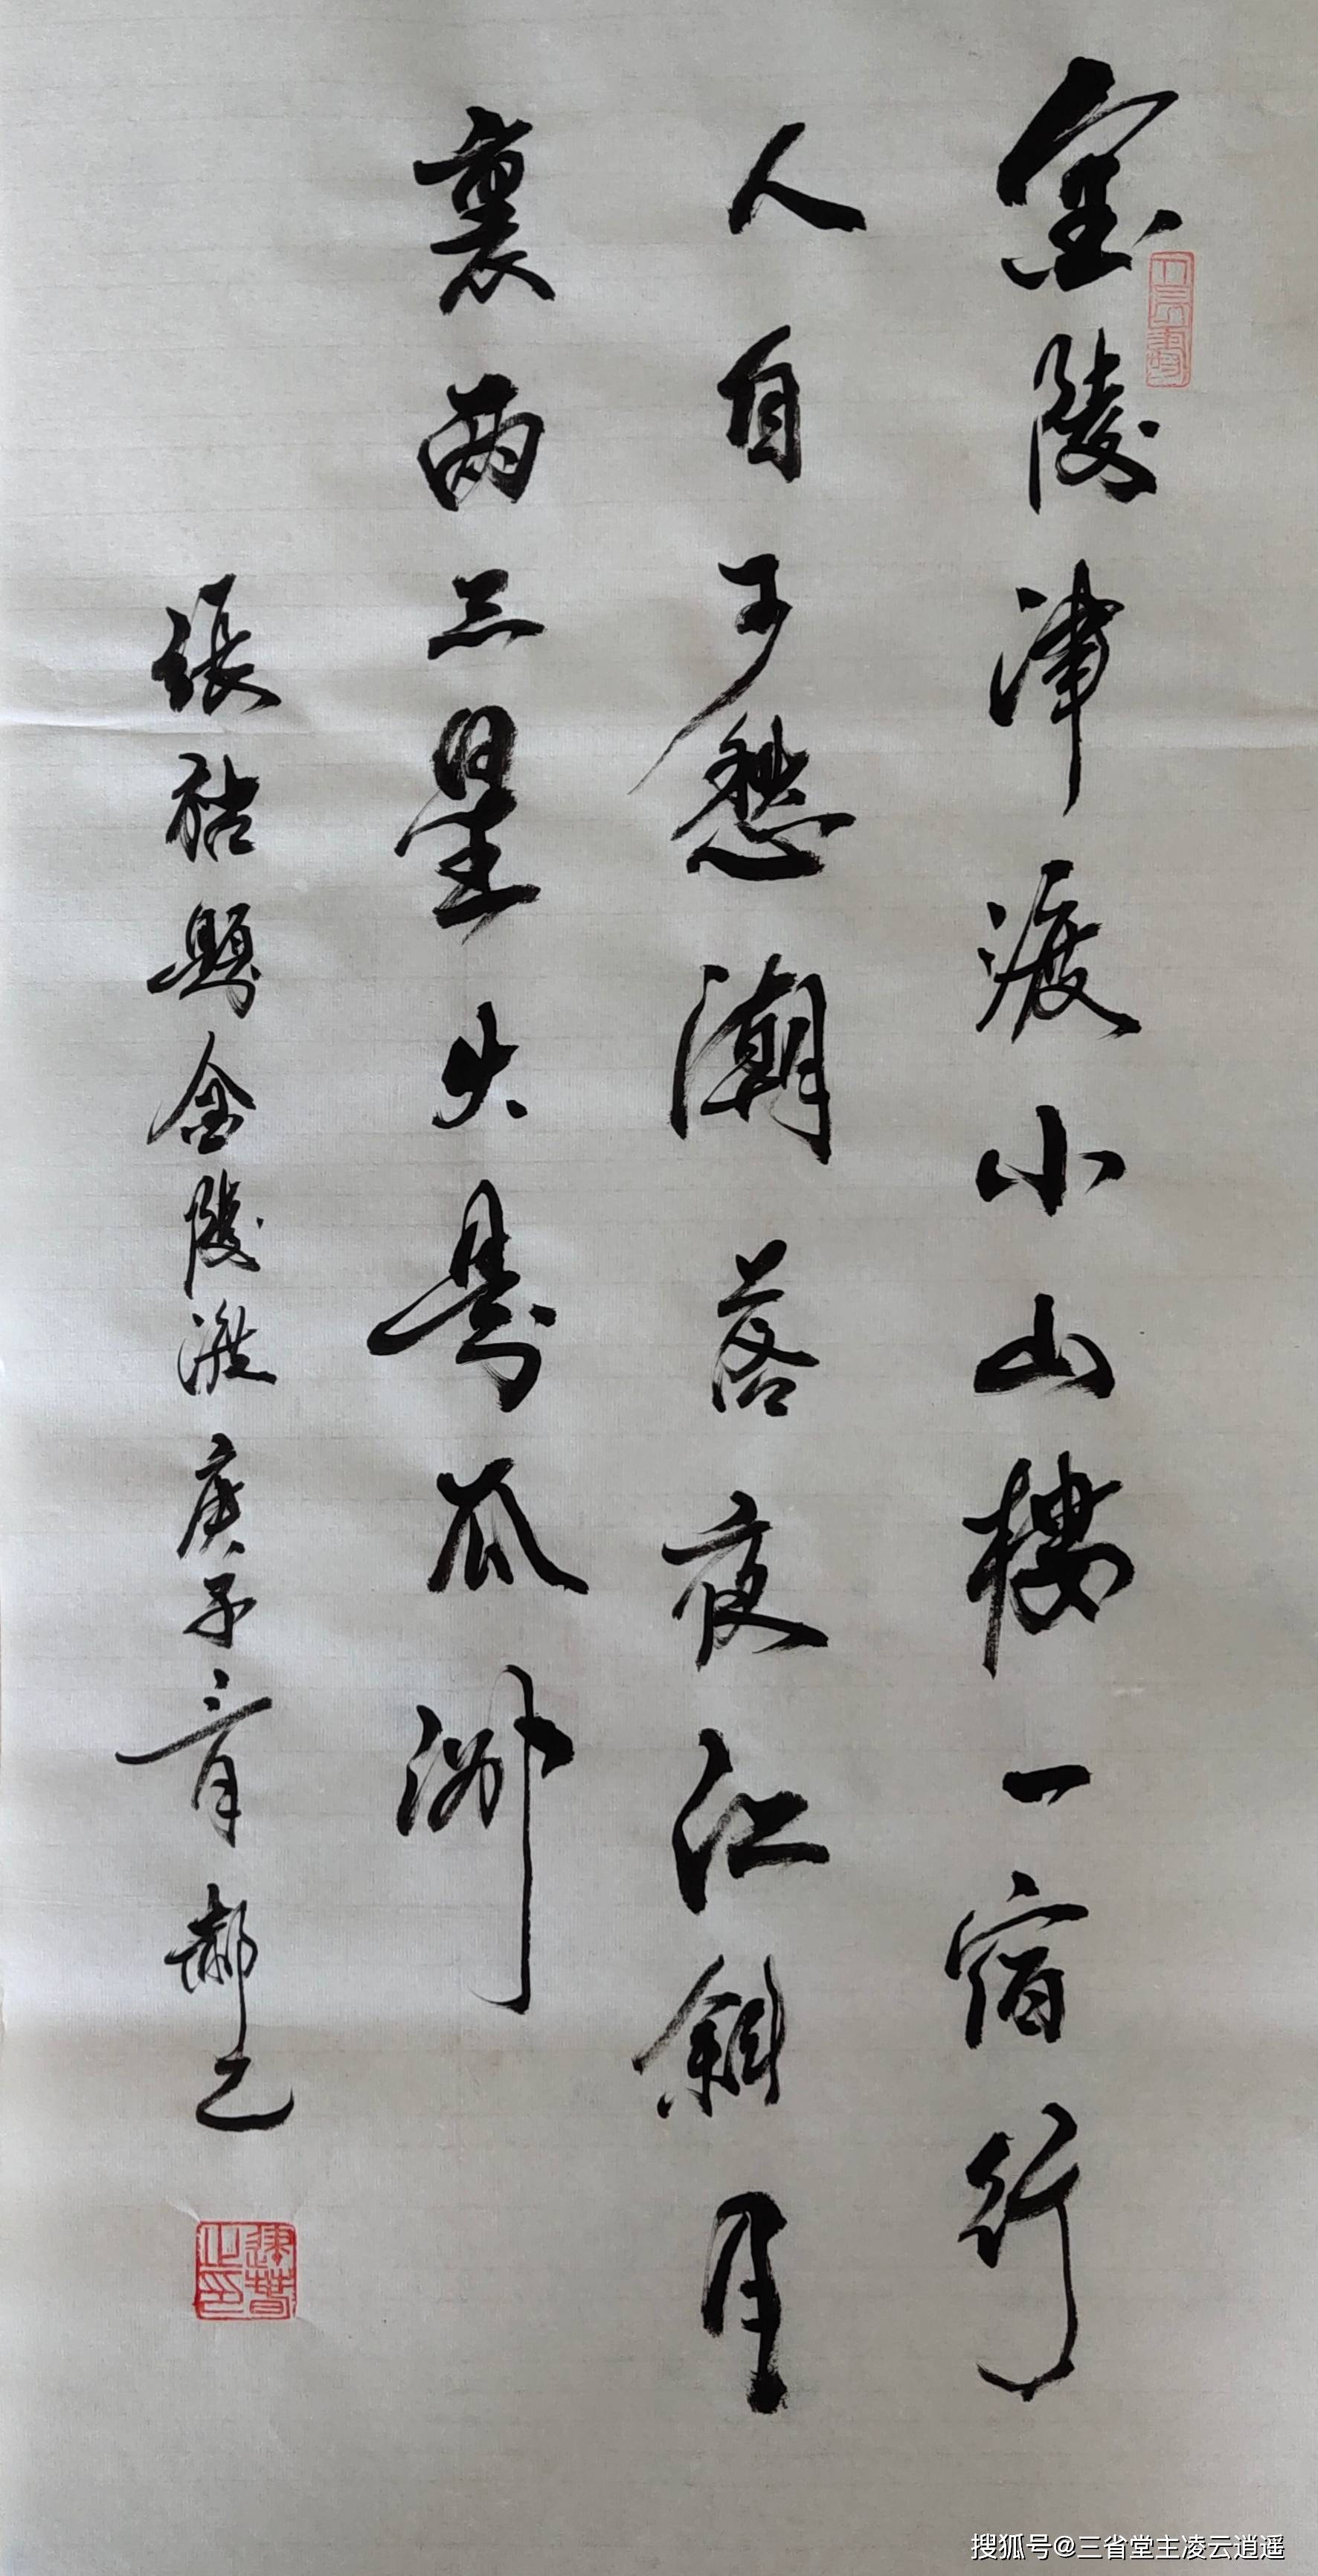 金陵津渡小山樓一宿行
人自可愁潮落夜江斜月
裏两三星火是瓜洲
張祜題金陵渡庚子三月郝乙
搜狐号@三省堂主凌云逍遥